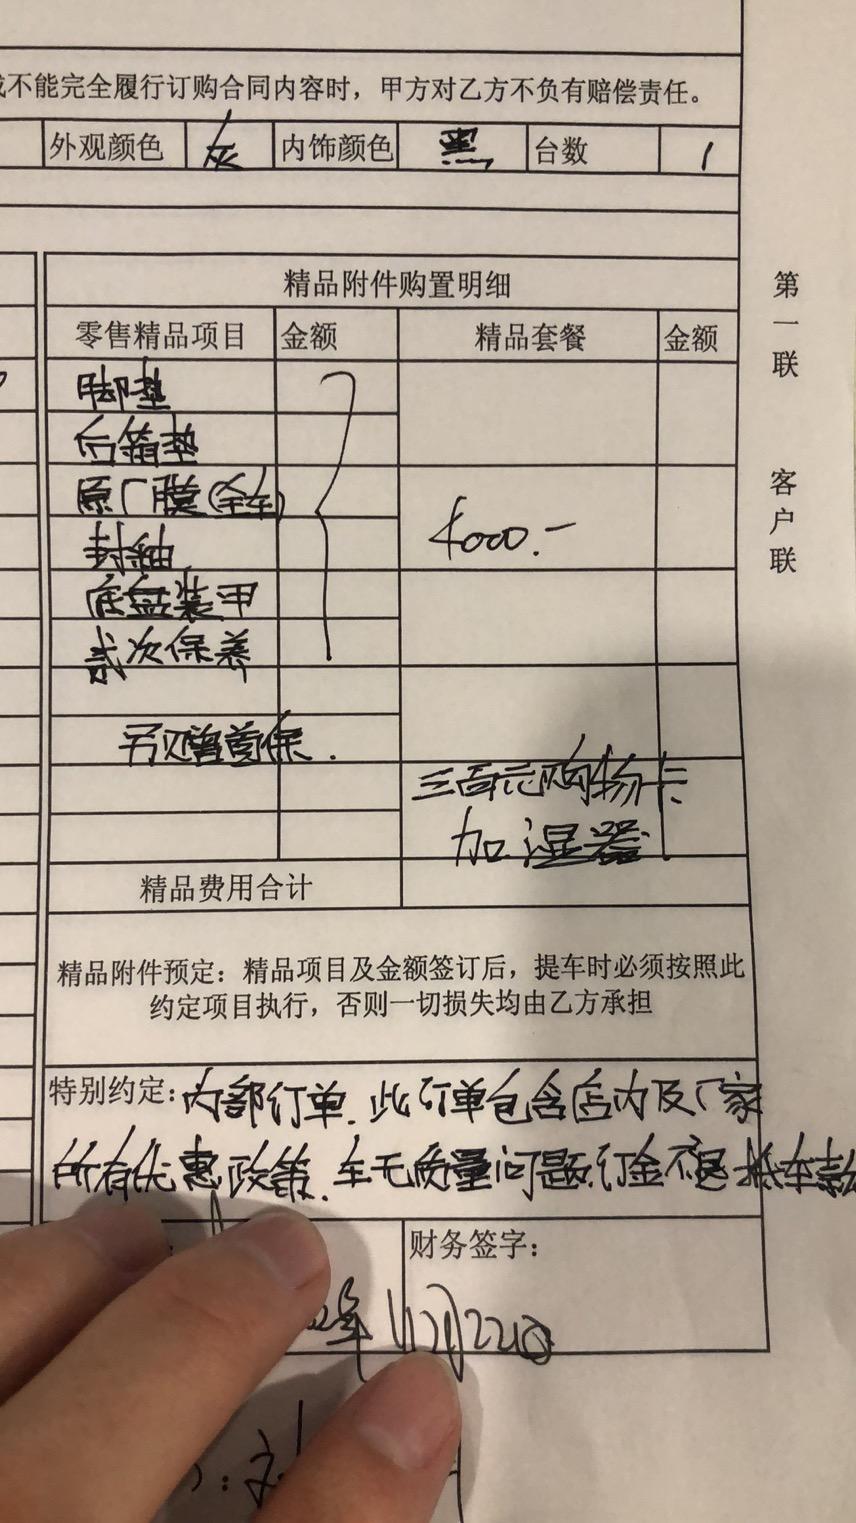 不能完全履行订购合同内容时，甲方对乙方不负有赔偿责任。
外观颜色 灰 内饰颜色 黑 台数 1
精品附件购置明细
零售精品项目 金额 精品套餐 金额
脚垫
后箱垫
原厂膜(全车)
4000.-
封釉
底盘装甲
贰次保养
另赠首保.
三百元购物卡
加湿器
精品费用合计
精品附件预定：精品项目及金额签订后，提车时必须按照此
约定项目执行，否则一切损失均由乙方承担
特别约定：内部订单.此订单包含店内及厂家
所有优惠政策.车无质量问题订金不退抵车款
财务签字：
年12月22日
第一联
客户联